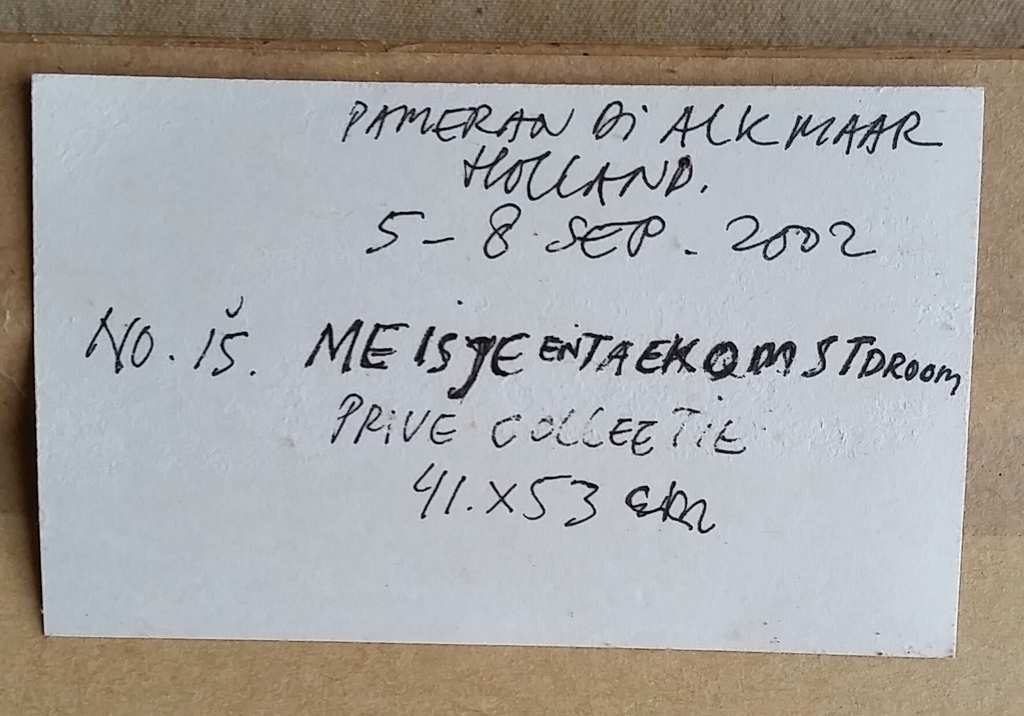 PAMERAN Di ALKMAAR
HOLLAND.
5 - 8 SEP. 2002
NO. 15. MEISJE EN TAEKOMSTDROOM
PRIVE COLLEETIE
41. X 53 cm